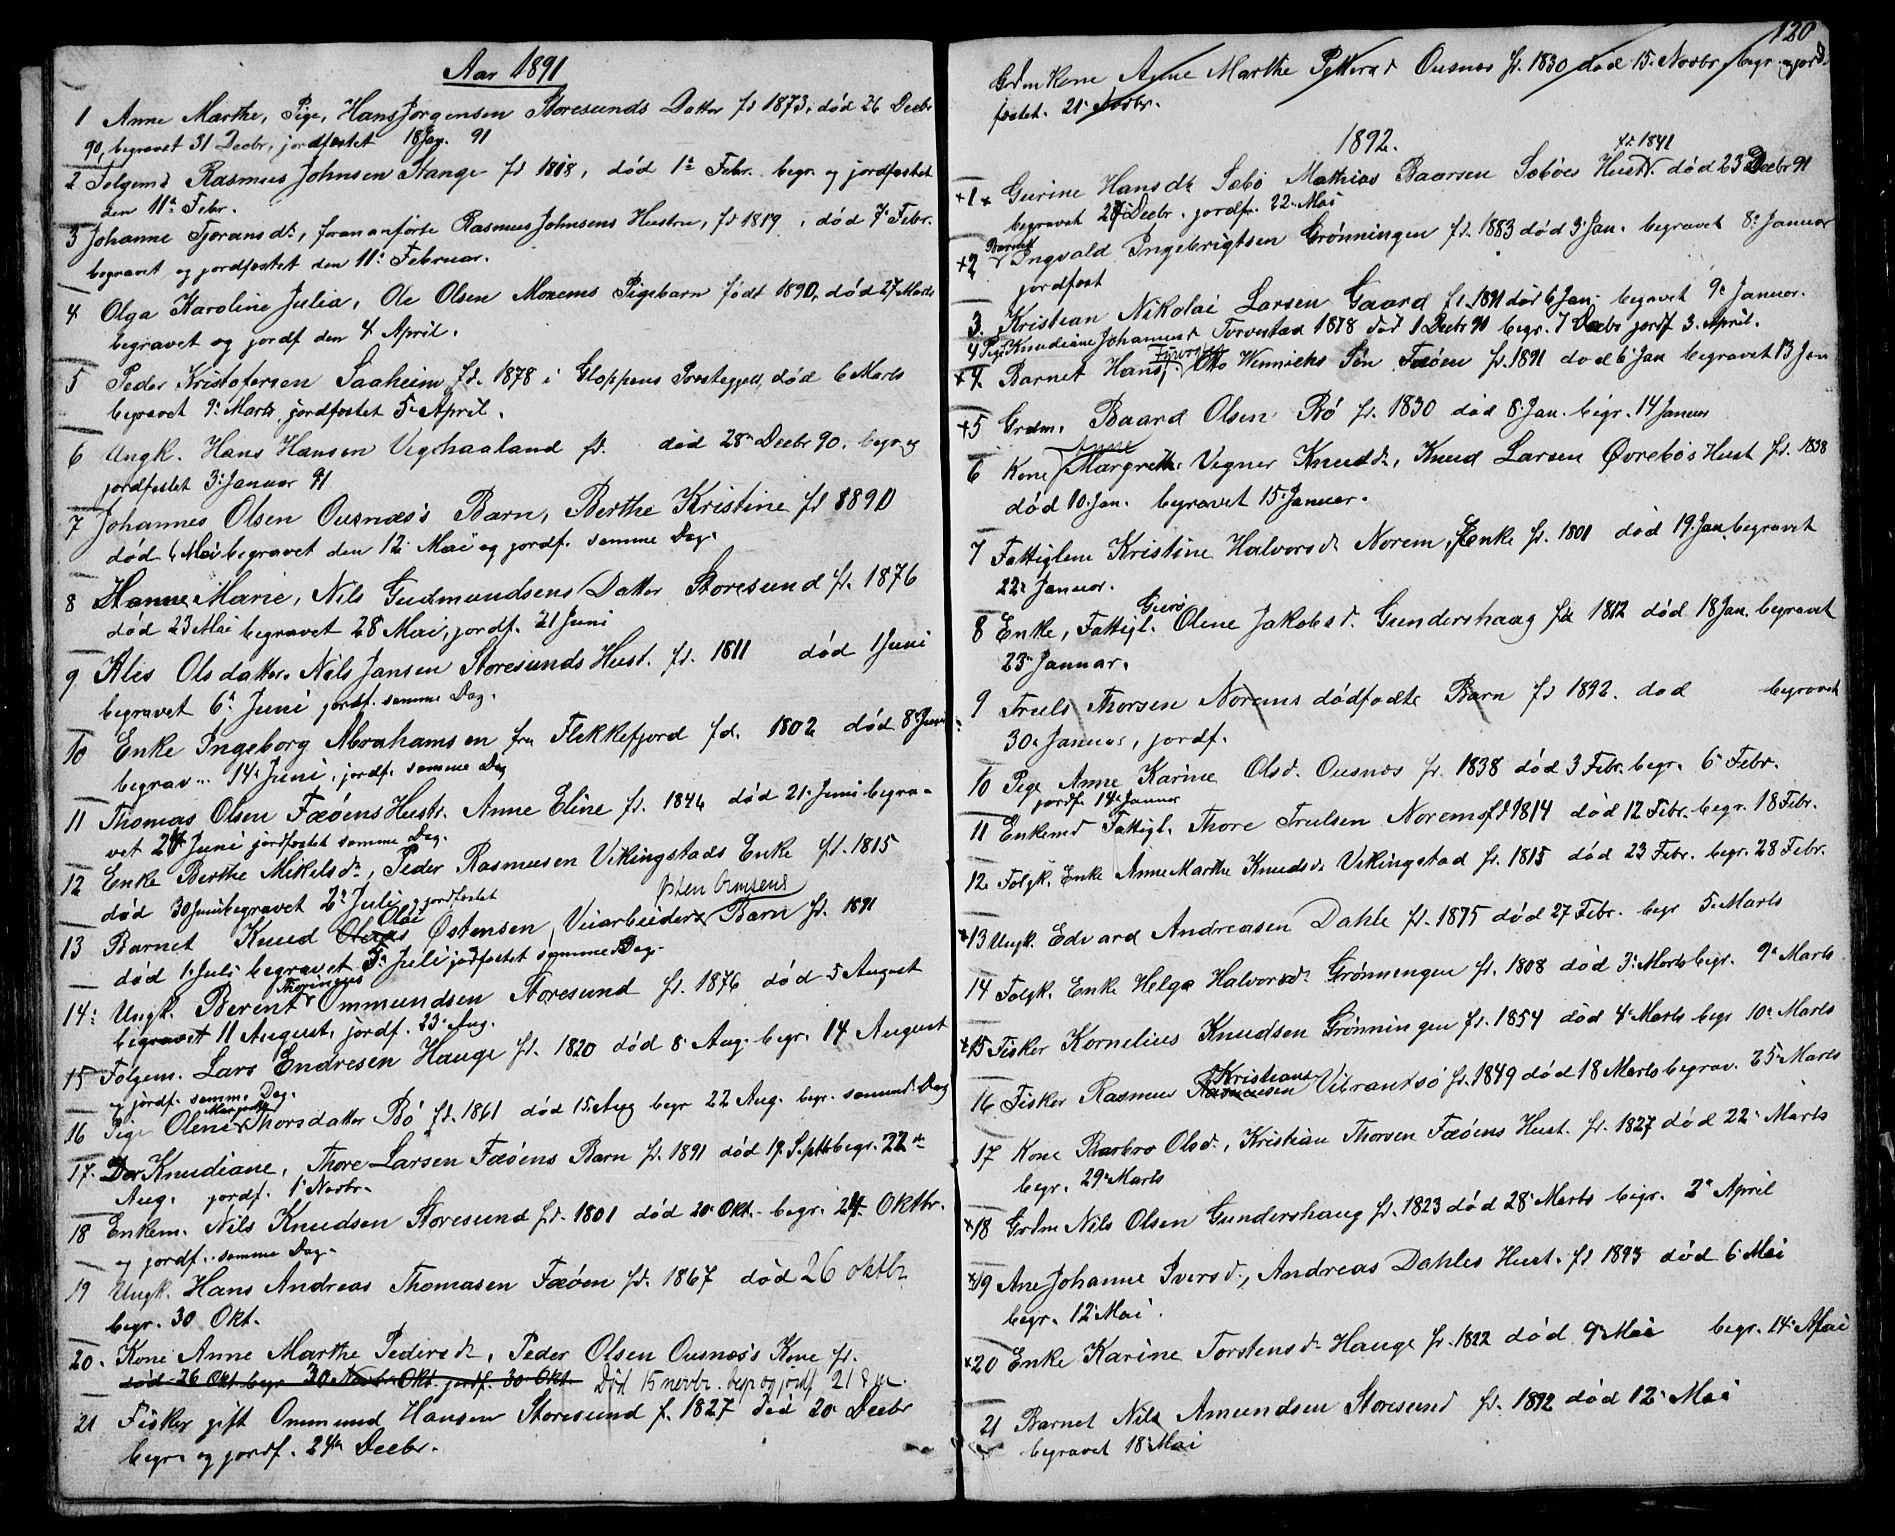 Aar 1891
1 Anne Marthe, Pige, Hans Jørgensen Storesunds Datter fd 1873, død 26 Decbr
90, begravet 31 Decbr, jordfæstet 18 Jan. 91
2 Folgemd Rasmus Johnsen Stange fd 1818, død 1ª Febr. begr. og jordfæstet
den 11ª Febr.
3 Johanne Tjoransdr, forananførte Rasmus Johnsens Hustru, fd 1819, død 7 Febr.
begravet og jordfæstet den 11ª Februar.
4 Olga Karoline Julia, Ole Olsen Norems Pigebarn født 1890, død 27 Marts
begravet og jordf den 4 April.
5 Peder Kristofersen Saaheim fd. 1878 i Gloppens Præstegjeld, død 6 Marts
begravet 9ª Marts, jordfæstet 5 April.
6 Ungk. Hans Hansen Veghaaland fd. død 28 Decbr 90. begr og
jordfæstet 3 Januar 91
7 Johannes Olsen Ousnæs's Barn, Berthe Kristine fd 1890
død 6 Mai begravet den 12 Mai og jordf. samme Dag.
8 Hanne Marie, Nils Gudmundsens Datter Storesund fd. 1876
død 23 Mai begravet 28 Mai, jordf. 21 Juni
9 Ales Olsdatter. Nils Jansen Storesunds Hust. fd. 1811 død 1 Juni
begravet 6ª Juni jordf. samme Dag.
10 Enke Ingeborg Abrahamsen fra Flekkefjord fd. 1802 død 8 Juni
begrav... 14 Juni, jordf. samme Dag
11 Thomas Olsen Fæøens Hustr. Anne Eline fd. 1846 død 21 Juni begra-
vet 24 Juni jordfæstet samme Dag.
12 Enke Berthe Mikelsdr, Peder Rasmusen Vikingstads Enke fd. 1815
død 30 Juni begravet 2ª Juli og jordfæstet
Østen Omsens
Olai
13 Barnet Knud Østensen, Veiarbeiders Barn fd. 1891
død 1 Juli begravet 5ª Juli jordfæstet samme Dag.
Thoringus
14: Ungk. Berent Ommundsen Storesund fd. 1876 død 5 August
begravet 11 August, jordf. 23 Aug.
15 Folgem. Lars Endresen Hauge fd. 1820 død 8 Aug. begr. 14 August
og jordf. samme Dag.
Margrethe
16 Pige Oline Thorsdatter Bø fd. 1861 død 15 Aug begr 22 Aug. begr. samme Dag
17. Knudiane, Thore Larsen Fæøens Barn fd. 1891 død 19. Septb begr. 22de
Aug. jordf. 1 Novbr.
18 Enkem. Nils Knudsen Storesund fd. 1801 død 20 Okt. begr. 24 Oktbr.
og jordf. samme Dag.
19 Ungk. Hans Andreas Thomasen Fæøen fd. 1867 død 26 oktbr
begr. 30 Okt.
20. Kone Anne Marthe Pedersdr, Peder Olsen Ousnæs's Kone fd.
død 26 Okt. begr 30 Novbr Okt. jordf. 30 Okt. Død 15 novbr. begr og jordf 21
21 Fisker gift Ommund Hansen Storesund f. 1827 død 20 Decbr
begr. og jordf. 24de Decbr.
120
Grdm Kone Anne Marthe Pettersd Ousnæs fd. 1830 død 15. Novbr, begr. og jord-
fæstet. 21 Novbr.
1892.
fd. 1841
+1+ Gurine Hansdr Sæbø Mathias Baarsen Sæbøes Hustr. død 23 Decbr 91
begravet 28 Decbr. jordf. 22 Mai
Barnet
+2 Ingvald Ingebrigtsen Grønningen fd. 1883 død 3 Jan. begravet 8ª Januar
jordfæst
3. Kristian Nikolai Larsen Gaard fd. 1891 død 6 Jan. begravet 9ª Januar.
4 Pige Knudiane Johannesd Torvestad 1878 død 1 Decbr 91 begr. 7 Decbr jordf 3. April.
+4. Barnet Hans Otto Wennichs Søn Fæøen fd. 1891 død 6 Jan begravet 13 Jan
+5 Grdm. Baard Olsen Bø fd. 1830 død 8 Jan. begr. 14 Januar
Anne
6 Kone Margrethe Vegner Knudsdr, Knud Larsen Øvrebøs Hust fd. 1838
død 10. Jan. begravet 15 Januar.
7 Fattiglem Kristine Halvorsdr Norem, Enke fd. 1801 død 19. Jan begravet
22 Januar.
Guro
8 Enke, Fattigl. Olene Jakobsd. Gundershaug fd 1812 død 18 Jan. begravet
23 Januar.
9 Truls Thorsen Norems dødfødte Barn fd 1892. død begravet
30 Januar, jordf.
10 Pige Anne Karine Olsd. Ousnæs fd. 1838 død 3 Febr. begr. 6 Febr.
jordf. 14 Januar
11 Enkemd Fattigl. Thore Trulsen Norems fd 1814 død 12 Febr. begr. 18 Febr.
12. Folgk. Enke Anne Marthe Knudsdr Vikingstad fd. 1815 død 23 Febr. begr. 28 Febr.
+13 Ungk. Edvard Andreasen Dahle fd. 1875 død 27 Febr. begr 5 Marts
14 Folgk. Enke Helga Halvorsdr Grønningen fd. 1808 død 3 Marts begr. 9ª Marts
+15 Fisker Kornelius Knudsen Grønningen fd. 1854 død 4 Marts begr 10ª Marts
Kristians
16 Fisker Rasmus Rasmussen Vibrandsø fd. 1849 død 18 Marts begrav. 25 Marts
17 Kone Barbro Olsd., Kristian Thorsen Fæøens Hust. fd. 1827 død 22 Marts
begr. 29 Marts
+18 Grdm Nils Olsen Gundershaug fd. 1823 død 28 Marts begr. 2ª April
+19 Ane Johanne Iversd., Andreas Dahles Hust. fd 1893 død 6 Mai
begr. 12 Mai.
+20 Enke Karine Torstensdr Hauge fd. 1822 død 9 Mai begr. 14 Mai
21 Barnet Nils Amundsen Storesund fd. 1892 død 12 Mai
begravet 18 Mai